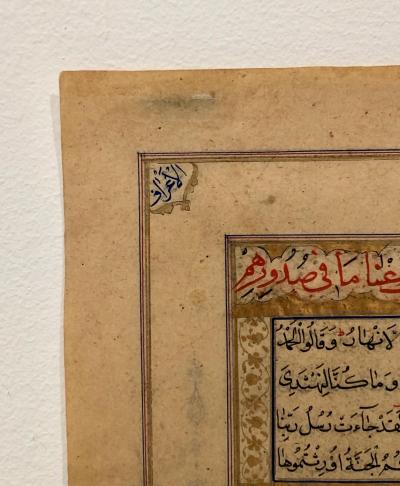 الاعراف
وَنَزَعْنَا مَا فِي صُدُورِهِمْ
الْاَنْهَارُ وَقَالُوا الْحَمْدُ
وَمَا كُنَّا لِنَهْتَدِيَ
لَقَدْ جَاءَتْ رُسُلُ رَبِّنَا
الْجَنَّةُ اُورِثْتُمُوهَا